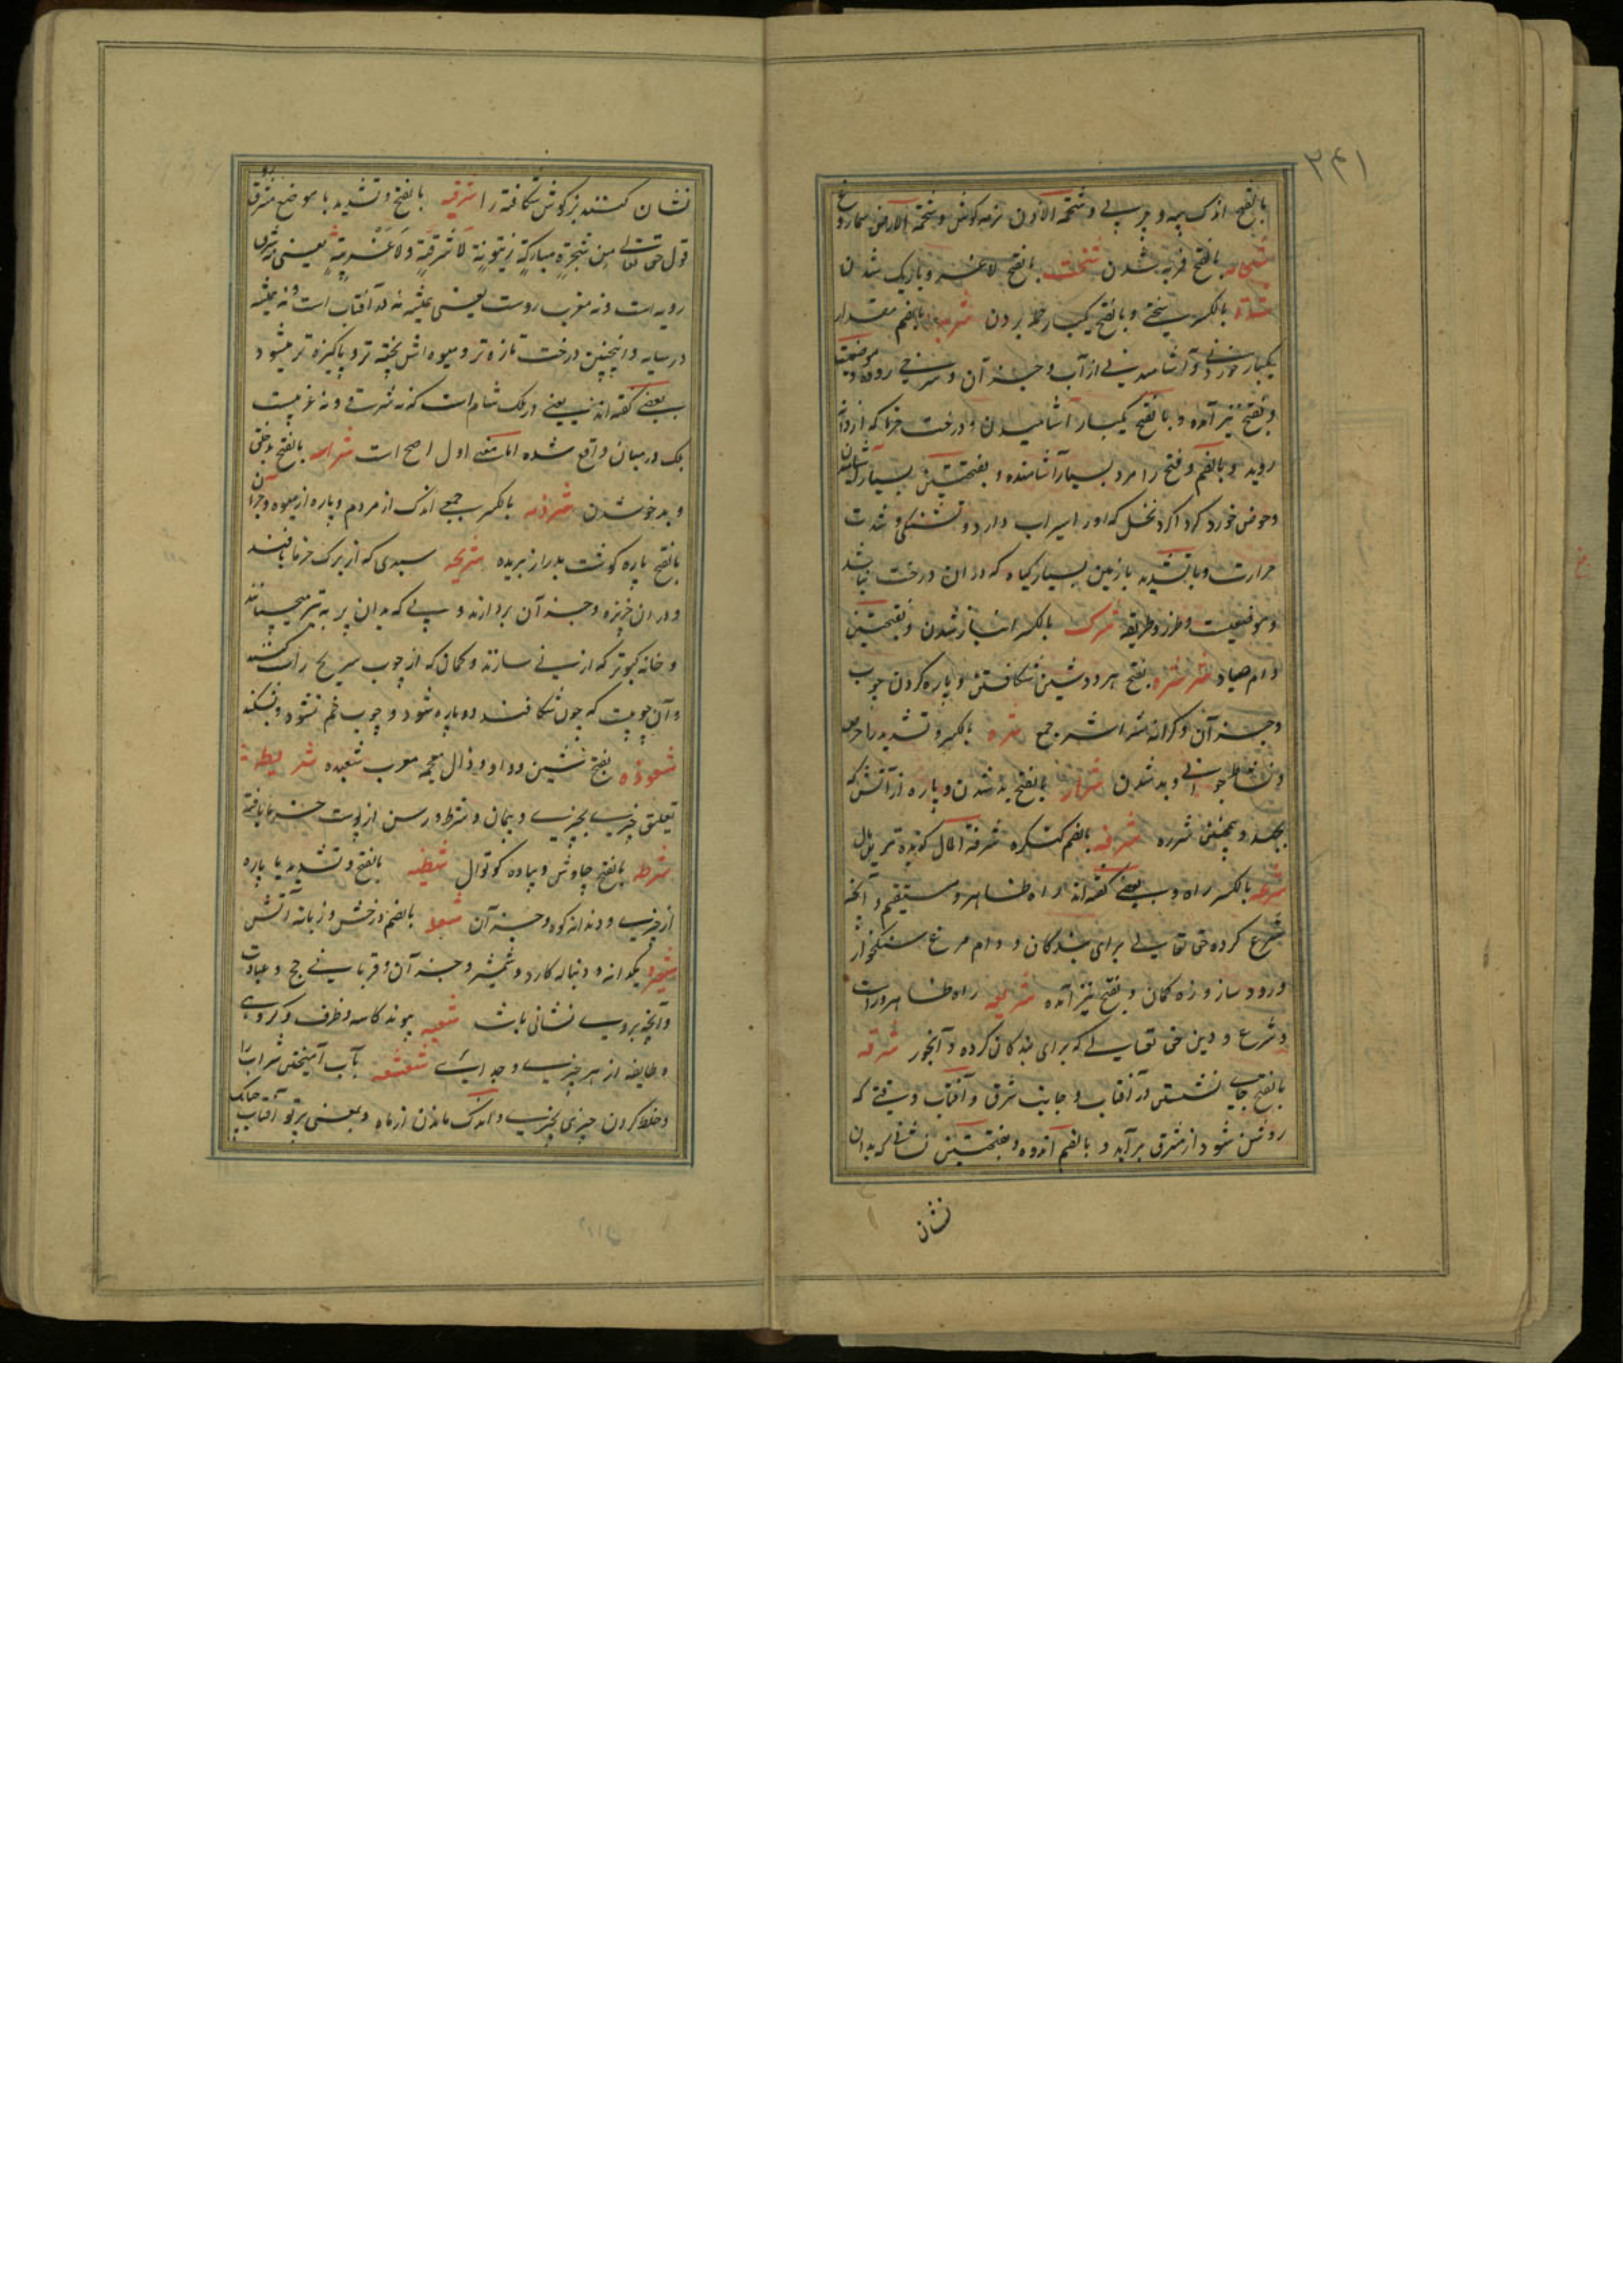 ۲۴۱
بالفتح اندک پیه و چربی و شحمة الاذن نرمه کوش و شحمة الارض سماروغ
بالفتح فربه شدن بالفتح لاغر و باریک شدن
بالکسر سختی و بالفتح یکبار حمله بردن شربه بالضم مقدار
یکبار خوردنی و آشامیدنی از آب و جز آن و سرخی روی و موضعیست
و بفتح نیز آمده و بالفتح یکبار آشامیدن و درخت خرما که از دانه
روید و بالضم و فتح را مرد بسیار آشامنده و بفتحتین بسیار
و حوض خورد کرداکرد نخل که او را سیراب دارد و تشنکی و شدت
حرارت و با تشدید با زمین بسیار کیاه که در ان درخت نباشد
و موضعیست و طرز و طریقه شرکت بالکسر انباز شدن و بفتحتین
دام صیاد شرشره بفتح هر دو شین شکافتن و پاره کردن چوب
و جز آن و کرانه اشر جمع شره بالکسر و تشدید را حرص
و نشاط جوانی و بد شدن شراره بالفتح بد شدن و پاره از آتش که
بجهد و همچنین شرره شرفه بالضم کنکره شرفة المال کزیده ترین مال
شرعه بالکسر راه و بعضی کفته اند راه ظاهر و مستقیم و آنچه
شرع کرده حق تعالی برای بندکان و دام مرغ سنکخوار
و رود ساز و زه کمان و بفتح نیز آمده شریعه راه ظاهر و راست
و شرع و دین حق تعالی که برای بندکان کرده و آبخور شرقه
بالفتح جای نشستن در آفتاب و جانب شرق و آفتاب وقتی که
روشن شود از شرق برآید و بالضم اندوه و بفتحتین نشانی که بدان
نشان
نشان کنند بز کوش شکافته را شرقیه بالفتح و تشدید یا موضع شرق رو
قول حق تعالی مِن شَجَرَةٍ مُبارَكَةٍ زَيتونَةٍ لا شَرقِيَّةٍ وَلا غَربِيَّةٍ یعنی نه شرق
رویه است و نه مغرب روست یعنی همیشه نه در آفتاب است و نه همیشه
در سایه و اینچنین درخت تازه تر و میوه اش پخته تر و پاکیزه تر میشود
بعضی کفته اند یعنی در ملک شام است که نه شرقی و نه غربیست
بلک در میان واقع شده اما معنی اول اصح است بالفتح بدخلقی
و بدخو شدن شرذمه بالکسر جمعی اندک از مردم و پاره از میوه و جز آن
بالفتح پاره کوشت بدراز بریده شریحه سبدی که از برک خرما بافند
و در ان خربزه و جز آن بردارند و پی که بدان پر به تیر میچسپانند
و خانه کبوتر که از نی سازند و کمان که از چوب شریح راست کنند
و آن چوبیست که چون شکافند دو پاره شود و چوب خم نشود و نشکند
شعوذه بفتح شین و واو و ذال معجمه معرب شعبده شریطة
تعلیق چیزی بچیزی و پیمان و شرط و رسن از پوست خرما بافته
شرطه بالفتح چاوش و پیاده کوتوال شظیه بالفتح و تشدید یا پاره
از چیزی و دندانه کوه و جز آن شعله بالضم درخش و زبانه آتش
شعیره یکدانه و دنباله کارد و شمشیر و جز آن و قربانی حج و عبادت
و آنچه بروی نشانی باشد شعبه پیوند کاسه و ظرف و کروهی
و طایفه از هر چیزی و جدایی شعشعه بآب آمیختن شراب را
و خلط کردن چیزی بچیزی و اندک ماندن از ماه و بمعنی پرتو آفتاب